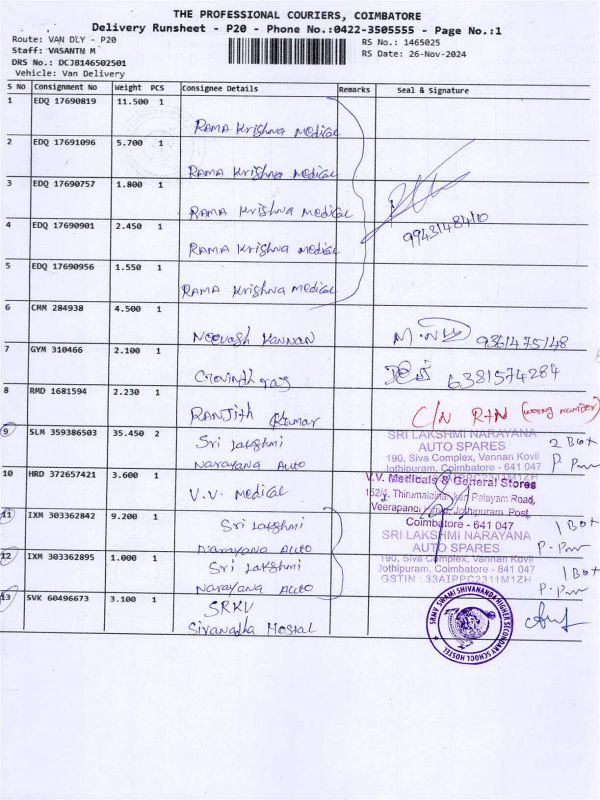 THE PROFESSIONAL COURIERS, COIMBATORE
Delivery Runsheet - P20 - Phone No.:0422-3505555 - Page No.:1
Route: VAN DLY - P20
RS No.: 1465025
Staff: VASANTH M
RS Date: 26-Nov-2024
DRS No.: DCJB146502501
Vehicle: Van Delivery
S No Consignment No Weight PCS Consignee Details Remarks Seal & Signature
1 EDQ 17690819 11.500 1
Rama Krishna Medical
2 EDQ 17691096 5.700 1
Rama Krishna Medical
3 EDQ 17690757 1.800 1
Rama Krishna Medical
9943148410
4 EDQ 17690901 2.450 1
Rama Krishna Medical
5 EDQ 17690956 1.550 1
Rama Krishna Medical
6 CMM 284938 4.500 1
Kannan
9361475148
7 GYM 310466 2.100 1
Govindh raj
6381574284
8 RMD 1681594 2.230 1
Ranjith Kumar
C/N RTN (wrong number)
9 SLM 359386503 35.450 2
Sri Lakshmi
Narayana Auto
SRI LAKSHMI NARAYANA
AUTO SPARES
190, Siva Complex, Vannan Kovil
Jothipuram, Coimbatore - 641 047
2 Box
10 HRD 372657421 3.600 1
V.V. Medical
V.V. Medicals & General Stores
Palayam Road,
Veerapandi Jothipuram Post,
Coimbatore - 641 047
11 IXM 303362842 9.200 1
Sri Lakshmi
Narayana Auto
SRI LAKSHMI NARAYANA
AUTO SPARES
1 Box
12 IXM 303362895 1.000 1
Sri Lakshmi
Narayana Auto
190, Siva Complex, Vannan Kovil
Jothipuram, Coimbatore - 641 047
GSTIN : 33AIPPC2311M1ZH
1 Box
13 SVK 60496673 3.100 1
SRKV
Sivanadha Hostal
SRMV SWAMI SHIVANANDA HIGHER SECONDARY SCHOOL HOSTEL